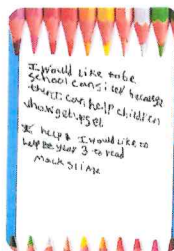 I would like to be
school consiler because
then I can help children
who get upset
I help & I would like to
help the year 3 to read
Mack slime